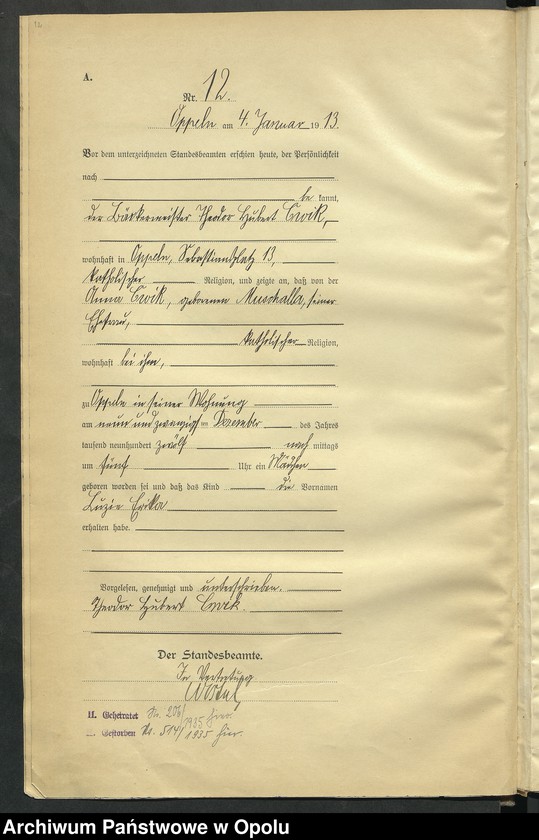 12
A.
Nr. 12.
Oppeln am 4. Januar 1913.
Vor dem unterzeichneten Standesbeamten erschien heute, der Persönlichkeit
nach
be kannt,
der Bäckermeister Theodor Hubert Cwik,
wohnhaft in Oppeln, Sebastiansplatz 13,
katholischer Religion, und zeigte an, daß von der
Anna Cwik, geborenen Muschalla, seiner
Ehefrau,
katholischer Religion,
wohnhaft bei ihm,
zu Oppeln in seiner Wohnung
am neun und zwanzigsten Dezember des Jahres
tausend neunhundert zwölf nach mittags
um fünf Uhr ein Mädchen
geboren worden sei und daß das Kind die Vornamen
Luzie Erika
erhalten habe.
Vorgelesen, genehmigt und unterschrieben.
Theodor Hubert Cwik.
Der Standesbeamte.
In Vertretung
II. Geheiratet No. 206/1935 hier.
Gestorben No. 514/1935 hier.
Archiwum Państwowe w Opolu